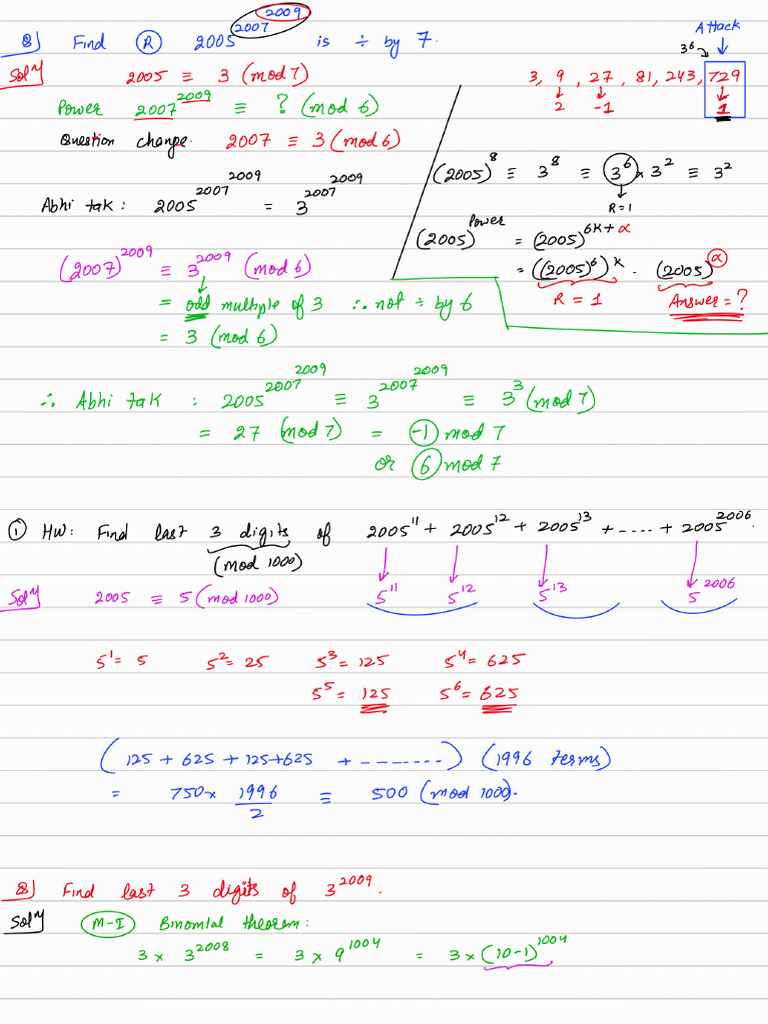 Q) Find (R) 2005^2007^2009 is ÷ by 7.
Attack
3^6
Sol^n 2005 ≡ 3 (mod 7)
3, 9, 27, 81, 243, 729
↓ ↓ ↓
2 -1 1
Power 2007^2009 ≡ ? (mod 6)
Question change. 2007 ≡ 3 (mod 6)
(2005)^8 ≡ 3^8 ≡ 3^6 × 3^2 ≡ 3^2
R = 1
Abhi tak: 2005^2007^2009 = 3^2007^2009
(2005)^Power = (2005)^6K+α
= ((2005)^6)^K . (2005)^α
R = 1 Answer = ?
(2007)^2009 ≡ 3^2009 (mod 6)
= odd multiple of 3 ∴ not ÷ by 6
= 3 (mod 6)
∴ Abhi tak : 2005^2007^2009 ≡ 3^2007^2009 ≡ 3^3 (mod 7)
= 27 (mod 7) = -1 mod 7
or 6 mod 7
① HW: Find last 3 digits of 2005^11 + 2005^12 + 2005^13 + ---- + 2005^2006.
(mod 1000)
Sol^n 2005 ≡ 5 (mod 1000) 5^11 5^12 5^13 5^2006
5^1 = 5 5^2 = 25 5^3 = 125 5^4 = 625
5^5 = 125 5^6 = 625
(125 + 625 + 125+625 + -------) (1996 terms)
= 750× 1996/2 ≡ 500 (mod 1000).
Q) Find last 3 digits of 3^2009.
Sol^n M-I Binomial theorem:
3 × 3^2008 = 3 × 9^1004 = 3 × (10-1)^1004